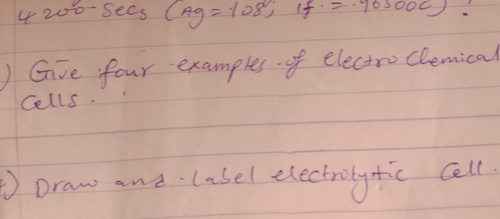 4200 Secs (Ag = 108, 1f = 96500C)?
) Give four examples of electrochemical
cells.
) Draw and label electrolytic cell.